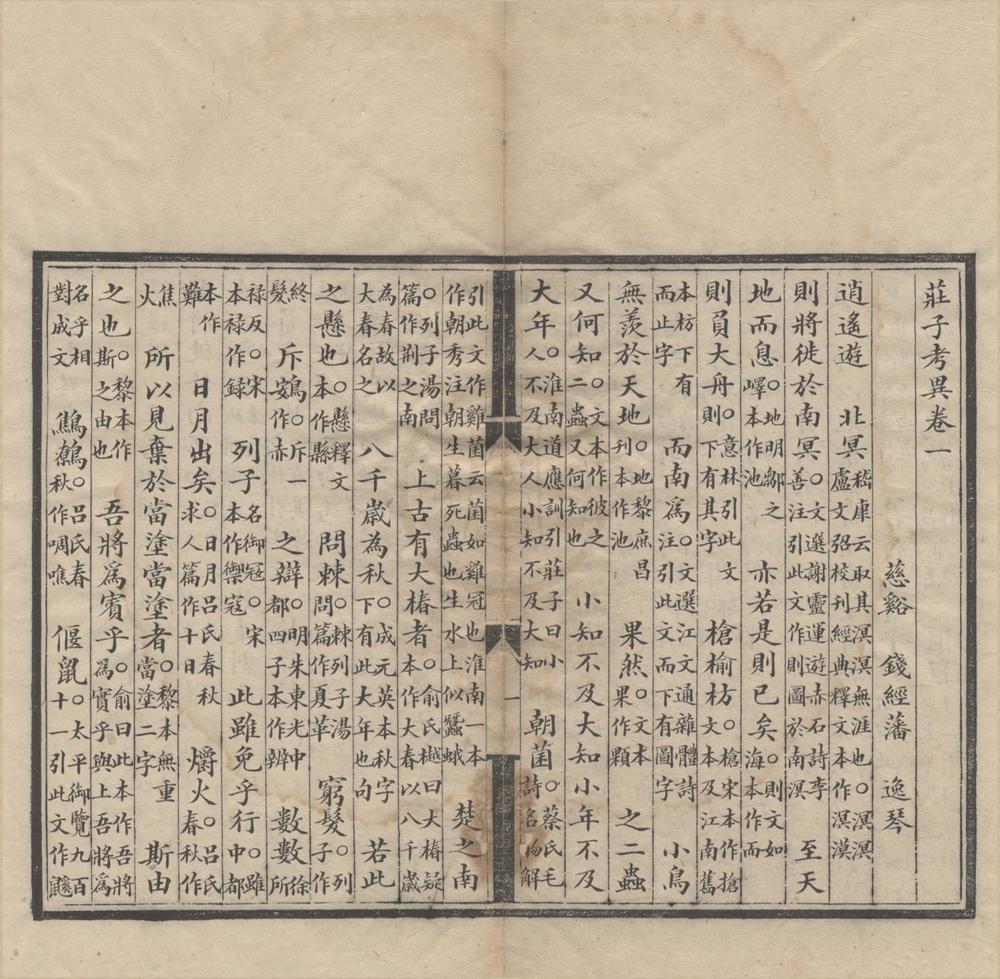 莊子考異卷一
慈谿 錢經藩 逸琴
逍遙遊 北冥嵇康云取其溟溟無涯也。溟溟盧文弨校刊經典釋文本作溟漠
則將徙於南冥。文選謝靈運遊赤石詩李善注引此文作則圖於南溟 至天
地而息。地明鄒之嶧本作池 亦若是則已矣。則文如海本作而
則負大舟則。意林引此文下有其字 槍榆枋。槍宋本作搶文本及江南舊
本枋下有而止字 而南爲。文選江文通雜體詩注引此文而下有圖字 小鳥
無羨於天地。地黎庶昌刊本作池 果然。文本果作顆 之二蟲
又何知。文本作彼之二蟲又何知也 小知不及大知小年不及
大年。淮南道應訓引莊子曰小人不及大人小知不及大知 朝菌。蔡氏毛詩名物解
引此文作雞菌云菌如雞冠也淮南一本作朝秀注朝生暮死蟲也生水上似蠶蛾 楚之南
。列子湯問篇作荊之南 上古有大椿者。俞氏樾曰大椿疑本作大春以八千歲
為春故以大春名之 八千歲為秋。成元英本秋字下有此大年也句 若此
之懸也。懸釋文本作縣 問棘。棘列子湯問篇作夏革 窮髮。列子作
終髮 斥鴳。斥一作赤 之辯。明朱東光中都四子本作辨 數數徐所
祿反。宋本祿作録 列子名御冠。宋本作禦寇 此雖免乎行。雖中都
本作難 日月出矣。日月呂氏春秋求人篇作十日 爝火。呂氏春秋作
焦火 所以見棄於當塗當塗者。黎本無重當塗二字 斯由
之也。黎本作斯之由也 吾將爲賓乎。俞曰此本作吾將為實乎與上吾將爲
名乎相對成文 鷦鷯。呂氏春秋作啁噍 偃鼠。太平御覽九百十一引此文作鼴
一